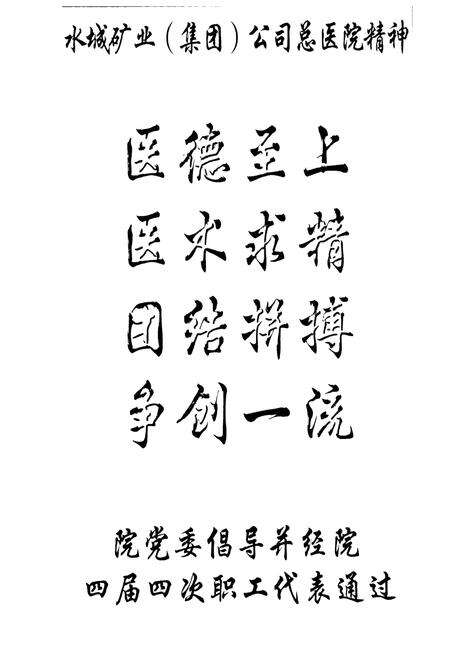 水城矿业（集团）公司总医院精神
医德至上
医术求精
团结拼搏
争创一流
院党委倡导并经院
四届四次职工代表通过